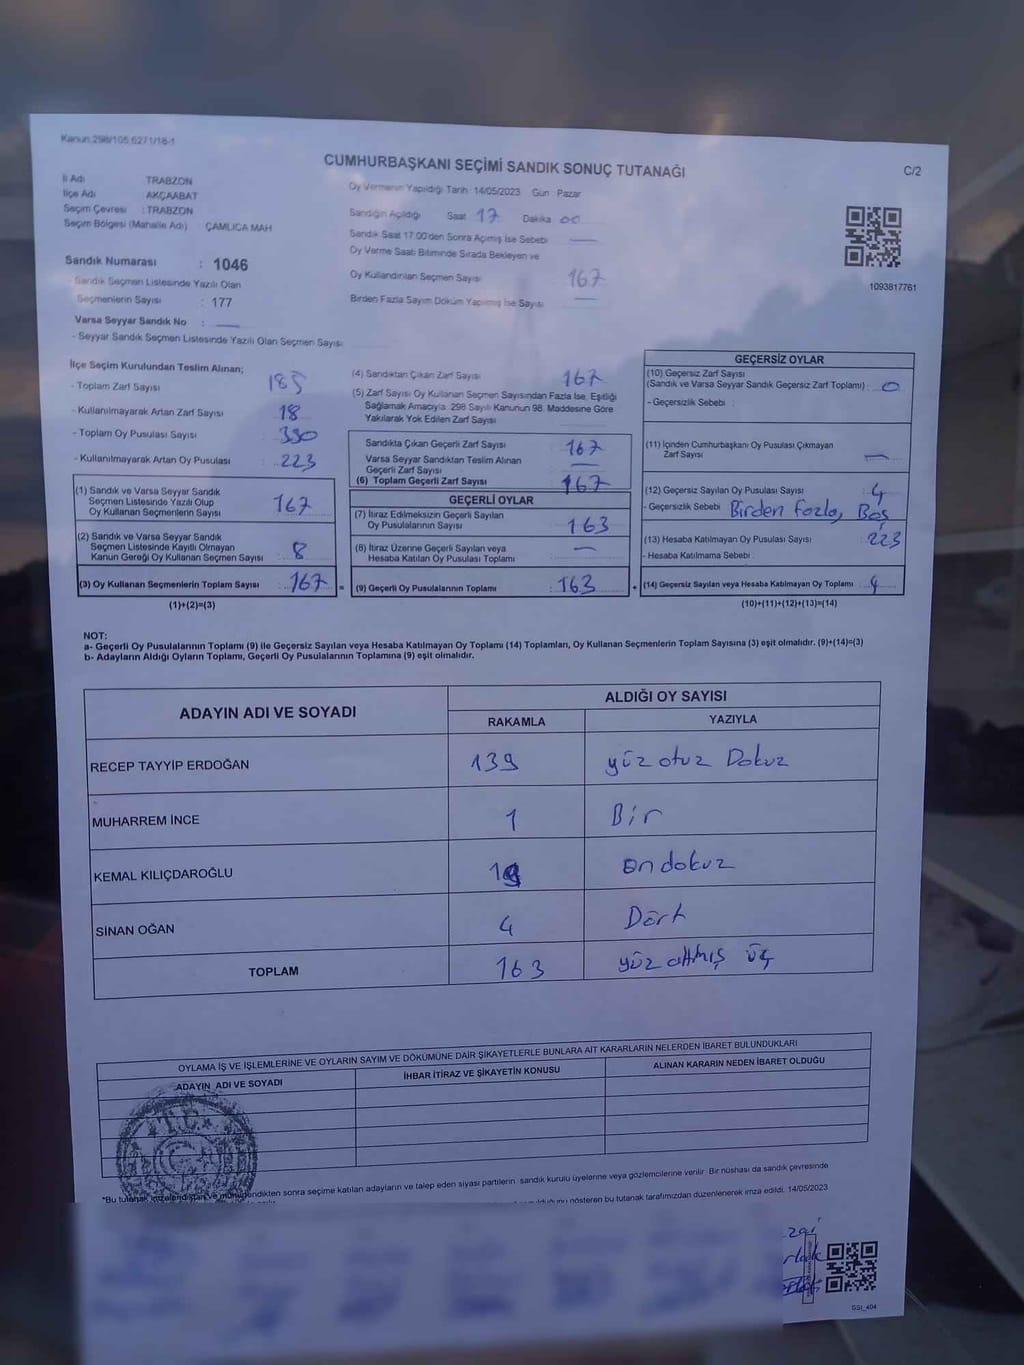 Kanun:298/105,6271/18-1
CUMHURBAŞKANI SEÇİMİ SANDIK SONUÇ TUTANAĞI
C/2
İl Adı TRABZON
İlçe Adı AKÇAABAT
Seçim Çevresi : TRABZON
Seçim Bölgesi (Mahalle Adı) ÇAMLICA MAH
Sandık Numarası : 1046
- Sandık Seçmen Listesinde Yazılı Olan
Seçmenlerin Sayısı : 177
Varsa Seyyar Sandık No :
- Seyyar Sandık Seçmen Listesinde Yazılı Olan Seçmen Sayısı
Oy Vermenin Yapıldığı Tarih : 14/05/2023 Gün : Pazar
Sandığın Açıldığı Saat 17 Dakika 00
Sandık Saat 17:00'den Sonra Açımış İse Sebebi
Oy Verme Saati Bitiminde Sırada Bekleyen ve
Oy Kullandırılan Seçmen Sayısı 167
Birden Fazla Sayım Döküm Yapılmış İse Sayısı
1093817761
İlçe Seçim Kurulundan Teslim Alınan;
- Toplam Zarf Sayısı 185
- Kullanılmayarak Artan Zarf Sayısı 18
- Toplam Oy Pusulası Sayısı 390
- Kullanılmayarak Artan Oy Pusulası : 223
(1) Sandık ve Varsa Seyyar Sandık
Seçmen Listesinde Yazılı Olup
Oy Kullanan Seçmenlerin Sayısı 167
(2) Sandık ve Varsa Seyyar Sandık
Seçmen Listesinde Kayıtlı Olmayan
Kanun Gereği Oy Kullanan Seçmen Sayısı 8
(3) Oy Kullanan Seçmenlerin Toplam Sayısı : 167 =
(1)+(2)=(3)
(4) Sandıktan Çıkan Zarf Sayısı 167
(5) Zarf Sayısı Oy Kullanan Seçmen Sayısından Fazla İse, Eşitliği
Sağlamak Amacıyla, 298 Sayılı Kanunun 98. Maddesine Göre
Yakılarak Yok Edilen Zarf Sayısı
Sandıkta Çıkan Geçerli Zarf Sayısı 167
Varsa Seyyar Sandıktan Teslim Alınan
Geçerli Zarf Sayısı
(6) Toplam Geçerli Zarf Sayısı 167
GEÇERLİ OYLAR
(7) İtiraz Edilmeksizin Geçerli Sayılan
Oy Pusulalarının Sayısı : 163
(8) İtiraz Üzerine Geçerli Sayılan veya
Hesaba Katılan Oy Pusulası Toplamı
(9) Geçerli Oy Pusulalarının Toplamı : 163 +
GEÇERSİZ OYLAR
(10) Geçersiz Zarf Sayısı
(Sandık ve Varsa Seyyar Sandık Geçersiz Zarf Toplamı) : 0
- Geçersizlik Sebebi :
(11) İçinden Cumhurbaşkanı Oy Pusulası Çıkmayan
Zarf Sayısı
(12) Geçersiz Sayılan Oy Pusulası Sayısı : 4
- Geçersizlik Sebebi Birden fazla, Boş
(13) Hesaba Katılmayan Oy Pusulası Sayısı : 223
- Hesaba Katılmama Sebebi :
(14) Geçersiz Sayılan veya Hesaba Katılmayan Oy Toplamı : 4
(10)+(11)+(12)+(13)=(14)
NOT:
a- Geçerli Oy Pusulalarının Toplamı (9) ile Geçersiz Sayılan veya Hesaba Katılmayan Oy Toplamı (14) Toplamları, Oy Kullanan Seçmenlerin Toplam Sayısına (3) eşit olmalıdır. (9)+(14)=(3)
b- Adayların Aldığı Oyların Toplamı, Geçerli Oy Pusulalarının Toplamına (9) eşit olmalıdır.
ADAYIN ADI VE SOYADI ALDIĞI OY SAYISI
RAKAMLA YAZIYLA
RECEP TAYYİP ERDOĞAN 139 yüz otuz Dokuz
MUHARREM İNCE 1 Bir
KEMAL KILIÇDAROĞLU 19 on dokuz
SİNAN OĞAN 4 Dört
TOPLAM 163 yüz altmış üç
OYLAMA İŞ VE İŞLEMLERİNE VE OYLARIN SAYIM VE DÖKÜMÜNE DAİR ŞİKAYETLERLE BUNLARA AİT KARARLARIN NELERDEN İBARET BULUNDUKLARI
ADAYIN ADI VE SOYADI İHBAR İTİRAZ VE ŞİKAYETİN KONUSU ALINAN KARARIN NEDEN İBARET OLDUĞU
T.C.
*Bu tutanak imzalandıktan ve mühürlendikten sonra seçime katılan adayların ve talep eden siyasi partilerin sandık kurulu üyelerine veya gözlemcilerine verilir. Bir nüshası da sandık çevresinde
gösteren bu tutanak tarafımızdan düzenlenerek imza edildi. 14/05/2023
GSI_404